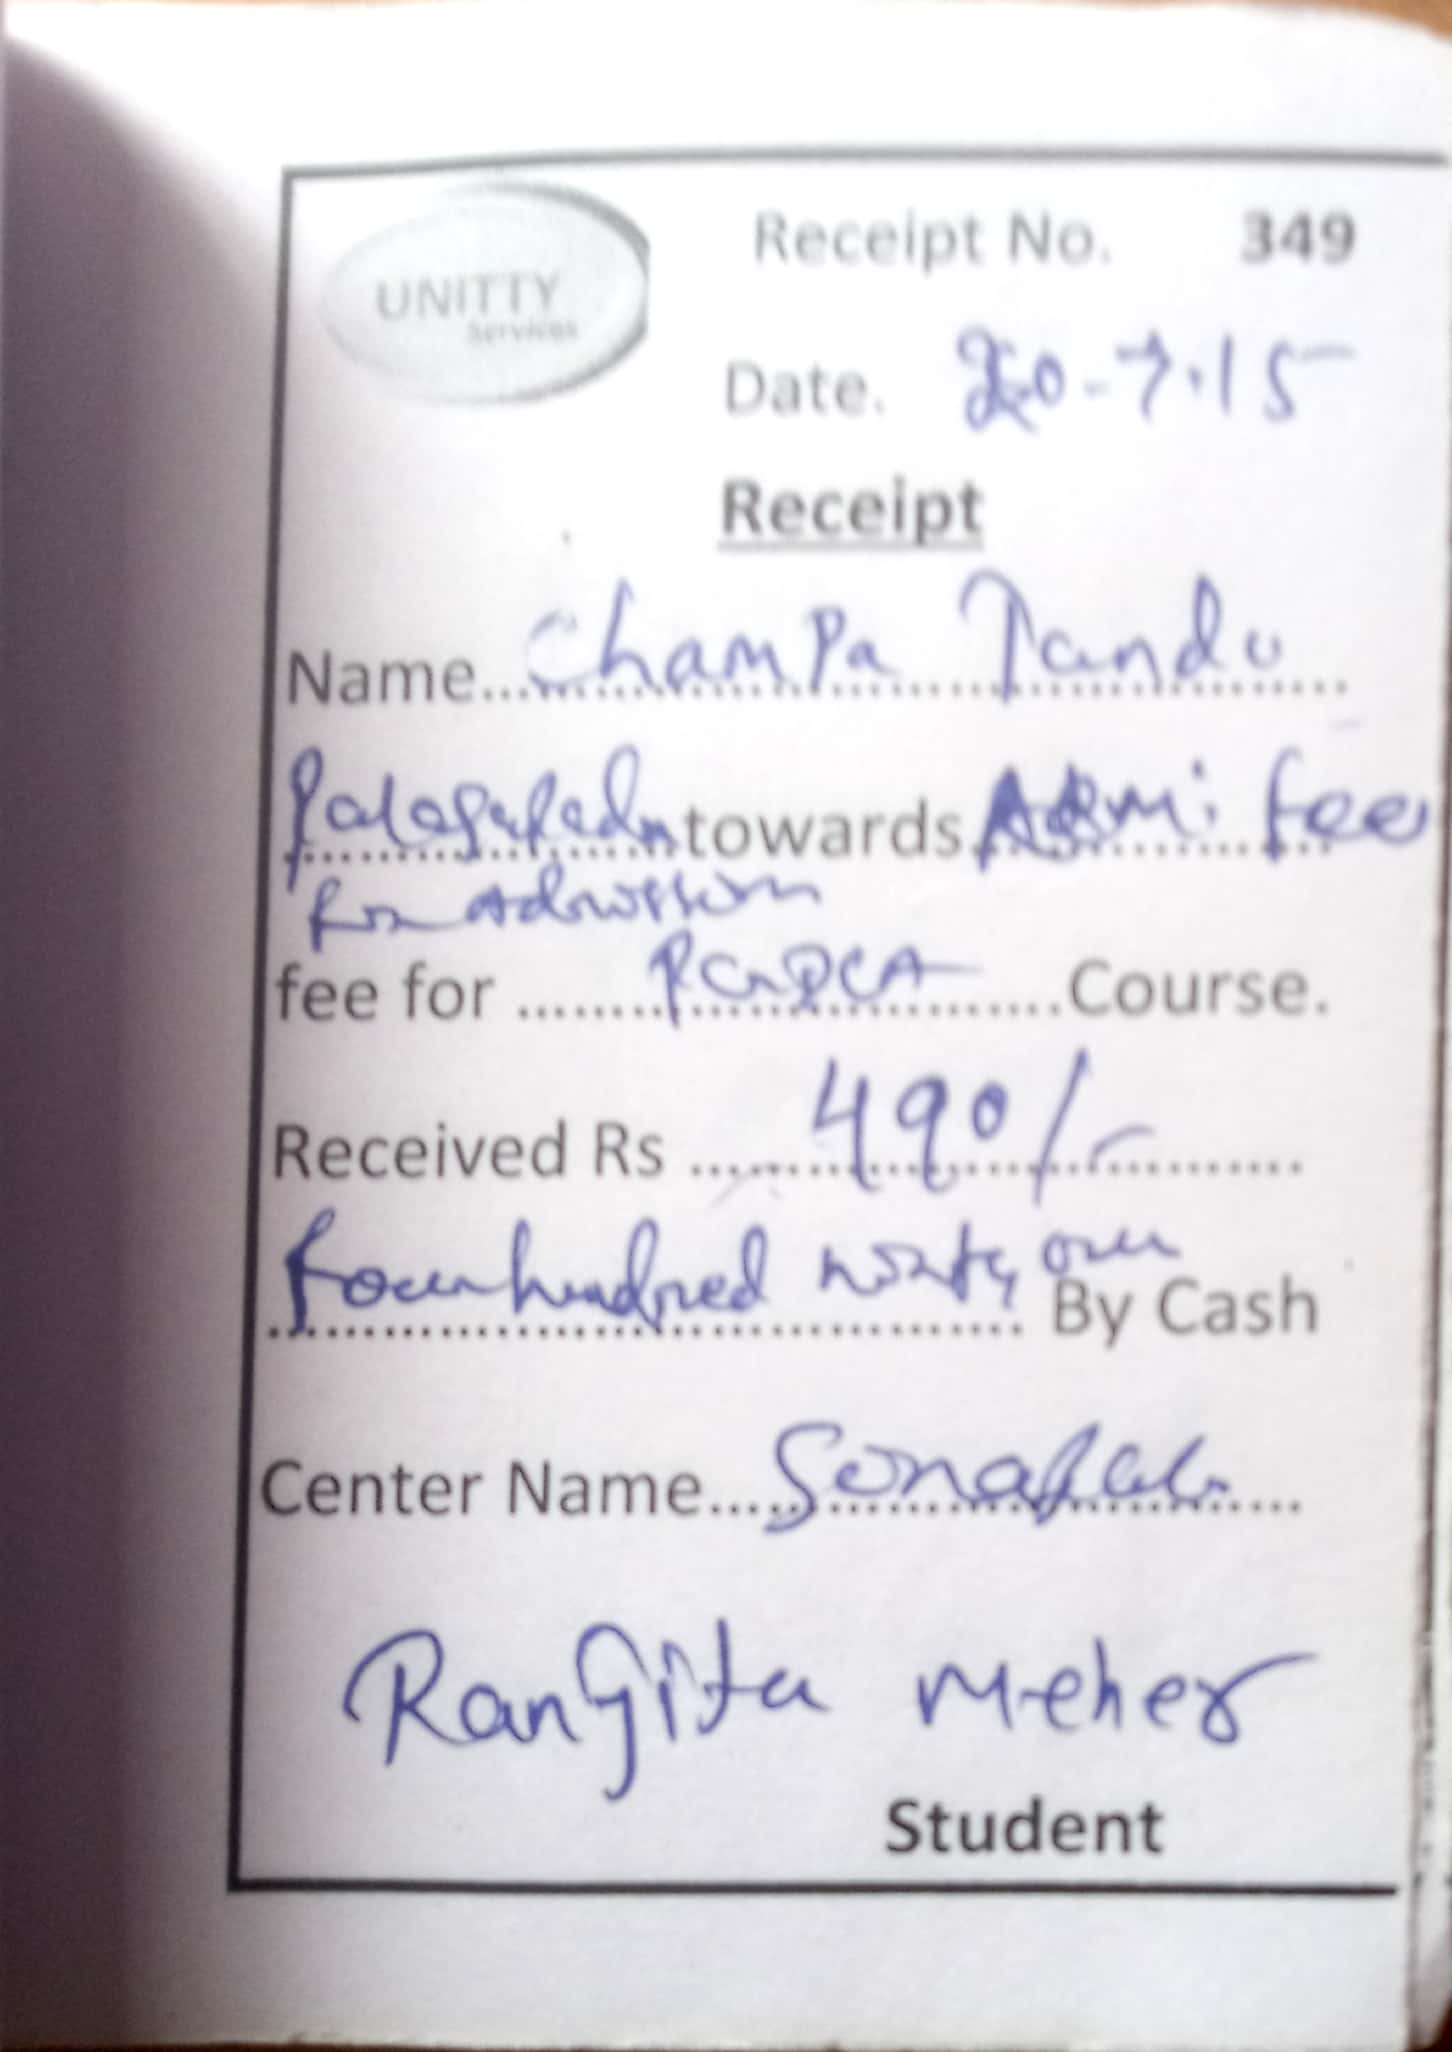 UNITTY
Services
Receipt No. 349
Date. 20-7-15
Receipt
Name Champa Tandu
towards Adm: fee
for Admission
fee for PGDCA Course.
Received Rs 490/-
four hundred ninty only
By Cash
Center Name Sonapali
Ranjita meher
Student